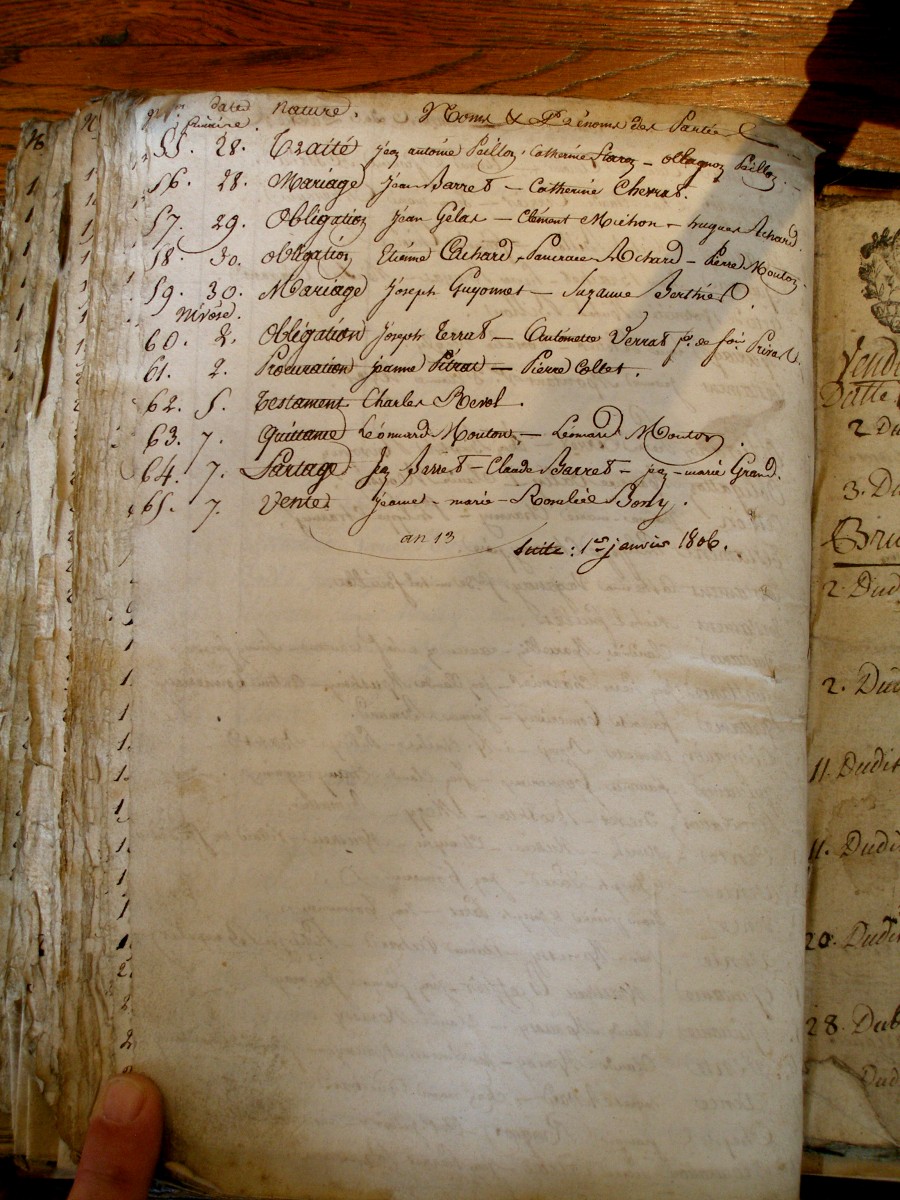 dates Nature. Noms & Prénoms des Parties
frimaire.
55. 28. Traité Jean antoine Peillon, Catherine
56. 28. Mariage Jean Barret — Catherine Chevrat.
57. 29. Obligation Jean Gelas — Clément Michon — hugues Achard
58. 30. Obligation Etienne Achard — Pierre Mouton
59. 30. Mariage Joseph Guyonnet — Suzanne Berthet
Nivôse.
60. 2. Obligation Joseph Terrat — Verrat
61. 2. Procuration Jeanne Pitrat — Pierre Collet.
62. 5. Testament Charles Revol.
63. 7. Quittance Léonnard Mouton, — Léonard Mouton.
64. 7. Partage Jean Barret — Claude Barret — Jean-marie Grand.
65. 7. Vente Jeanne - marie - Rosalie Bony.
an 13
Suite: 1er janvier 1806.
Vend
Datte
2 Du
3. Du
Bru
2. Dud
2. Dud
11. Dudit
11. Dudi
20. Dudi
28. Dub
Dud